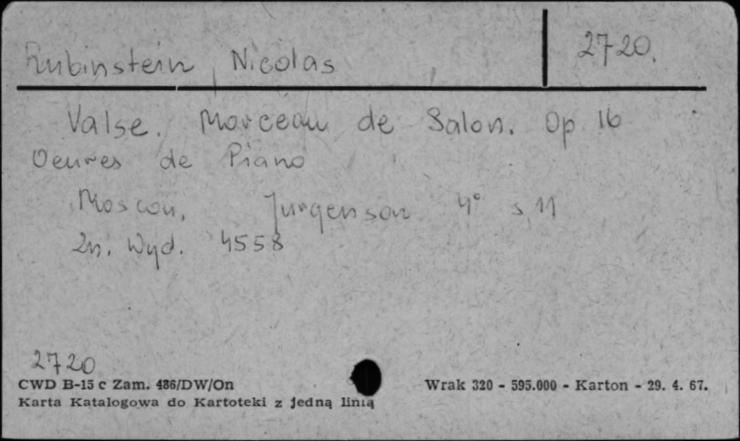 Rubinstein, Nicolas 2720.
Valse. Morceau de Salon. Op 16
Oeuvres de Piano
Moscou, Jurgenson 4° s. 11
Zn. Wyd. 4558
2720
CWD B-15 c Zam. 486/DW/On Wrak 320 - 595.000 - Karton - 29. 4. 67.
Karta Katalogowa do Kartoteki z jedną linią